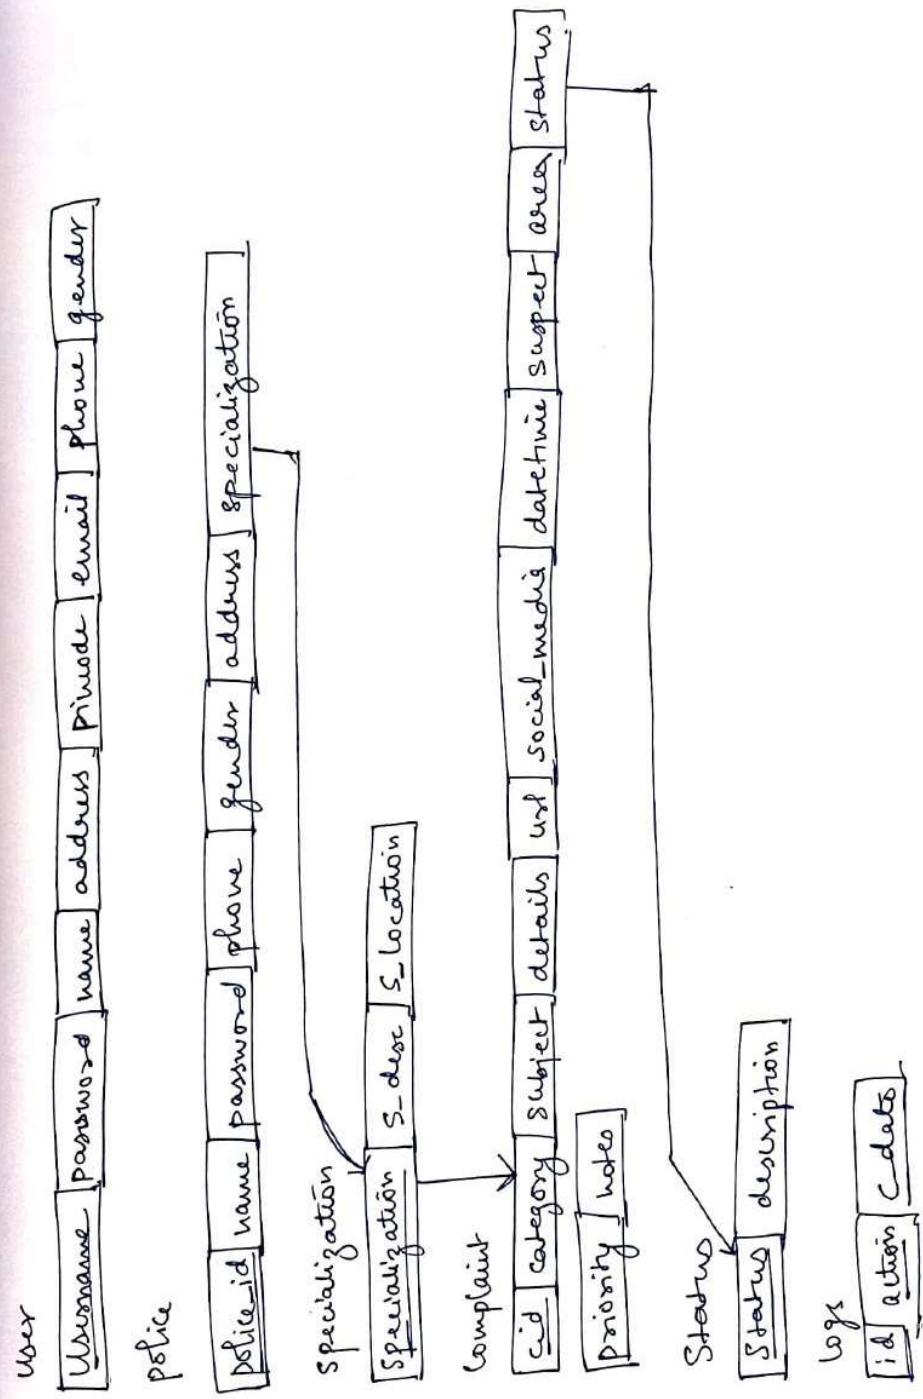 User
Username password name address pincode email phone gender
police
police_id name password phone gender address specialization
Specialization
Specialization S_desc S_location
Complaint
cid category subject details url social_media datetime suspect area status
priority notes
Status
Status description
logs
id action C_date